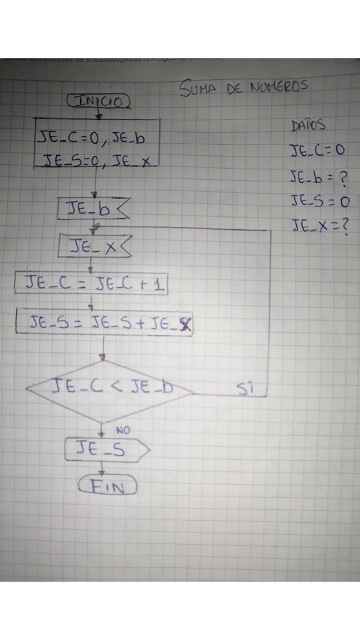 SUMA DE NUMEROS
INICIO
JE_C=0, JE_b
JE_S=0, JE_X
JE_b
JE_X
JE_C = JE_C + 1
JE_S = JE_S + JE_X
JE_C < JE_b
SI
NO
JE_S
FIN
DATOS
JE_C=0
JE_b=?
JE_S=0
JE_X=?